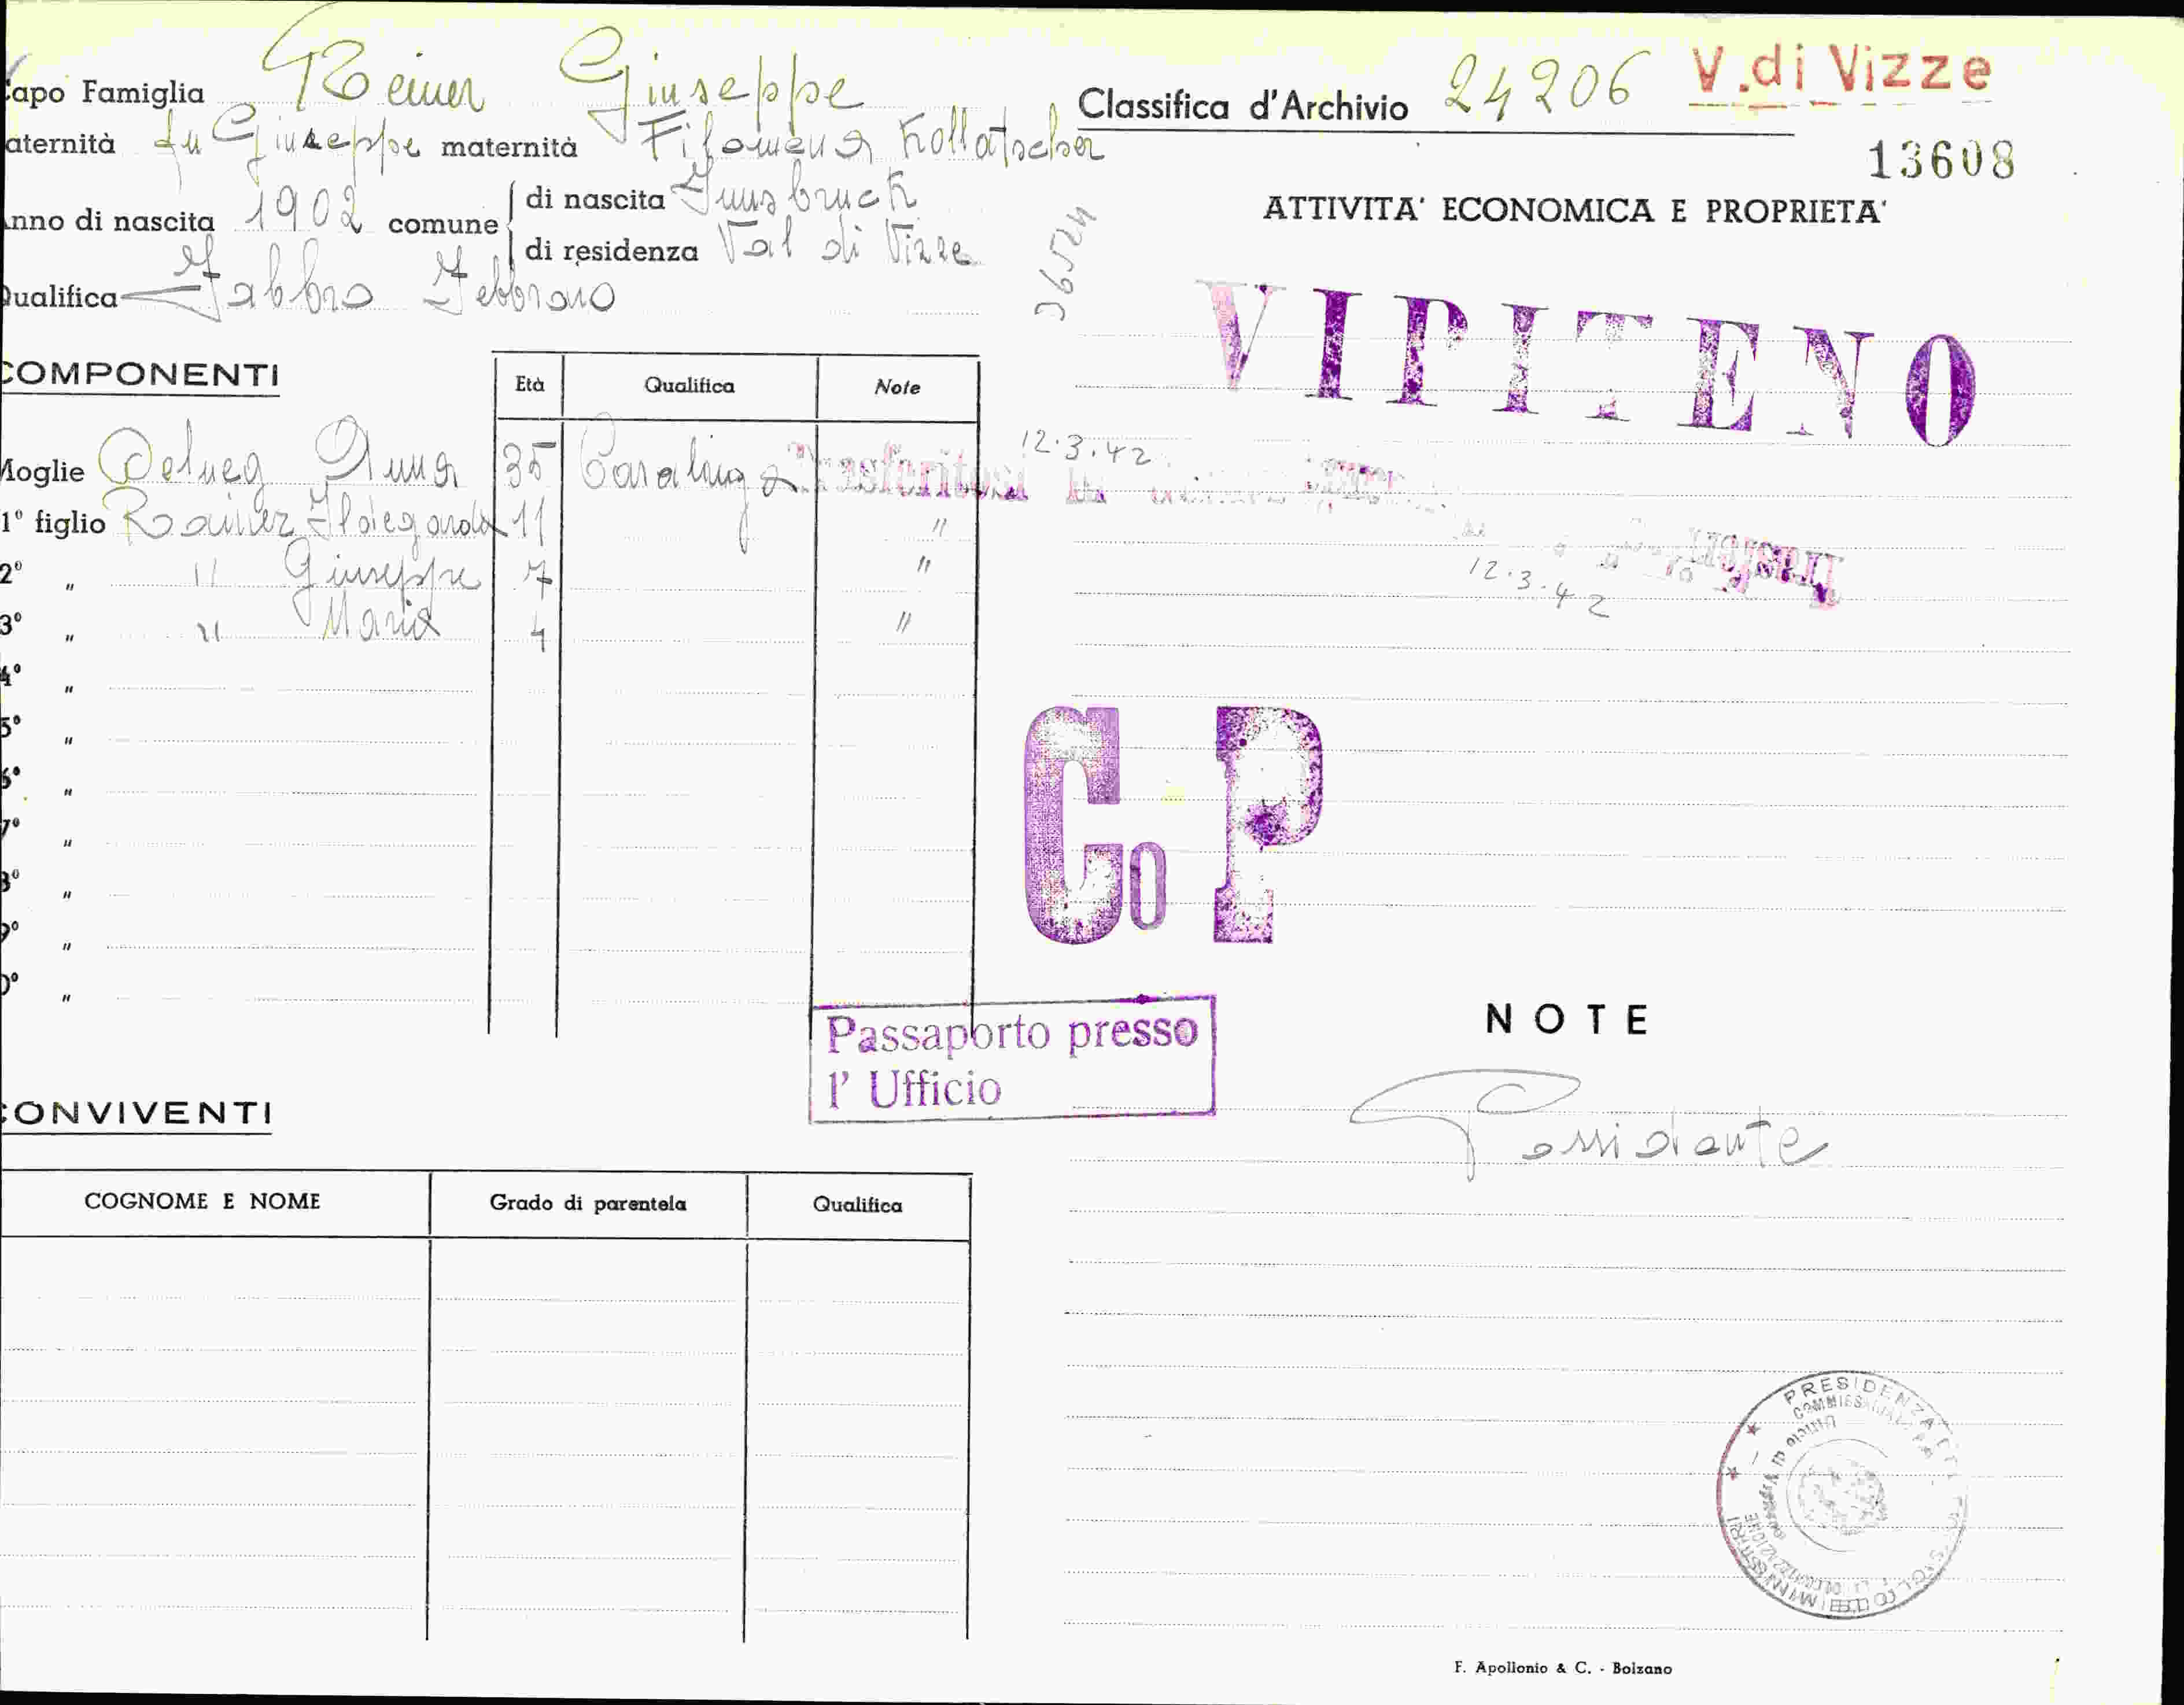 Capo Famiglia Reiner Giuseppe
aternità fu Giuseppe maternità Filomena Kollatscher
Anno di nascita 1902 comune di nascita Innsbruck
di residenza Val di Vizze
Qualifica Fabbro Febbraio
COMPONENTI Età Qualifica Note
Moglie Anna 35 Casalinga Trasferitosi
1° figlio Rainer Ildegarda 11 "
2° " " Giuseppe 7 "
3° " " Maria 4 "
4° "
5° "
6° "
7° "
8° "
9° "
0° "
Passaporto presso
l' Ufficio
CONVIVENTI
COGNOME E NOME Grado di parentela Qualifica
Classifica d'Archivio 24206 V. di Vizze
13608
36524
ATTIVITA' ECONOMICA E PROPRIETA'
VIPITENO
12.3.42
12.3.42
Co P
NOTE
Possidente
PRESIDENZA
F. Apollonio & C. - Bolzano